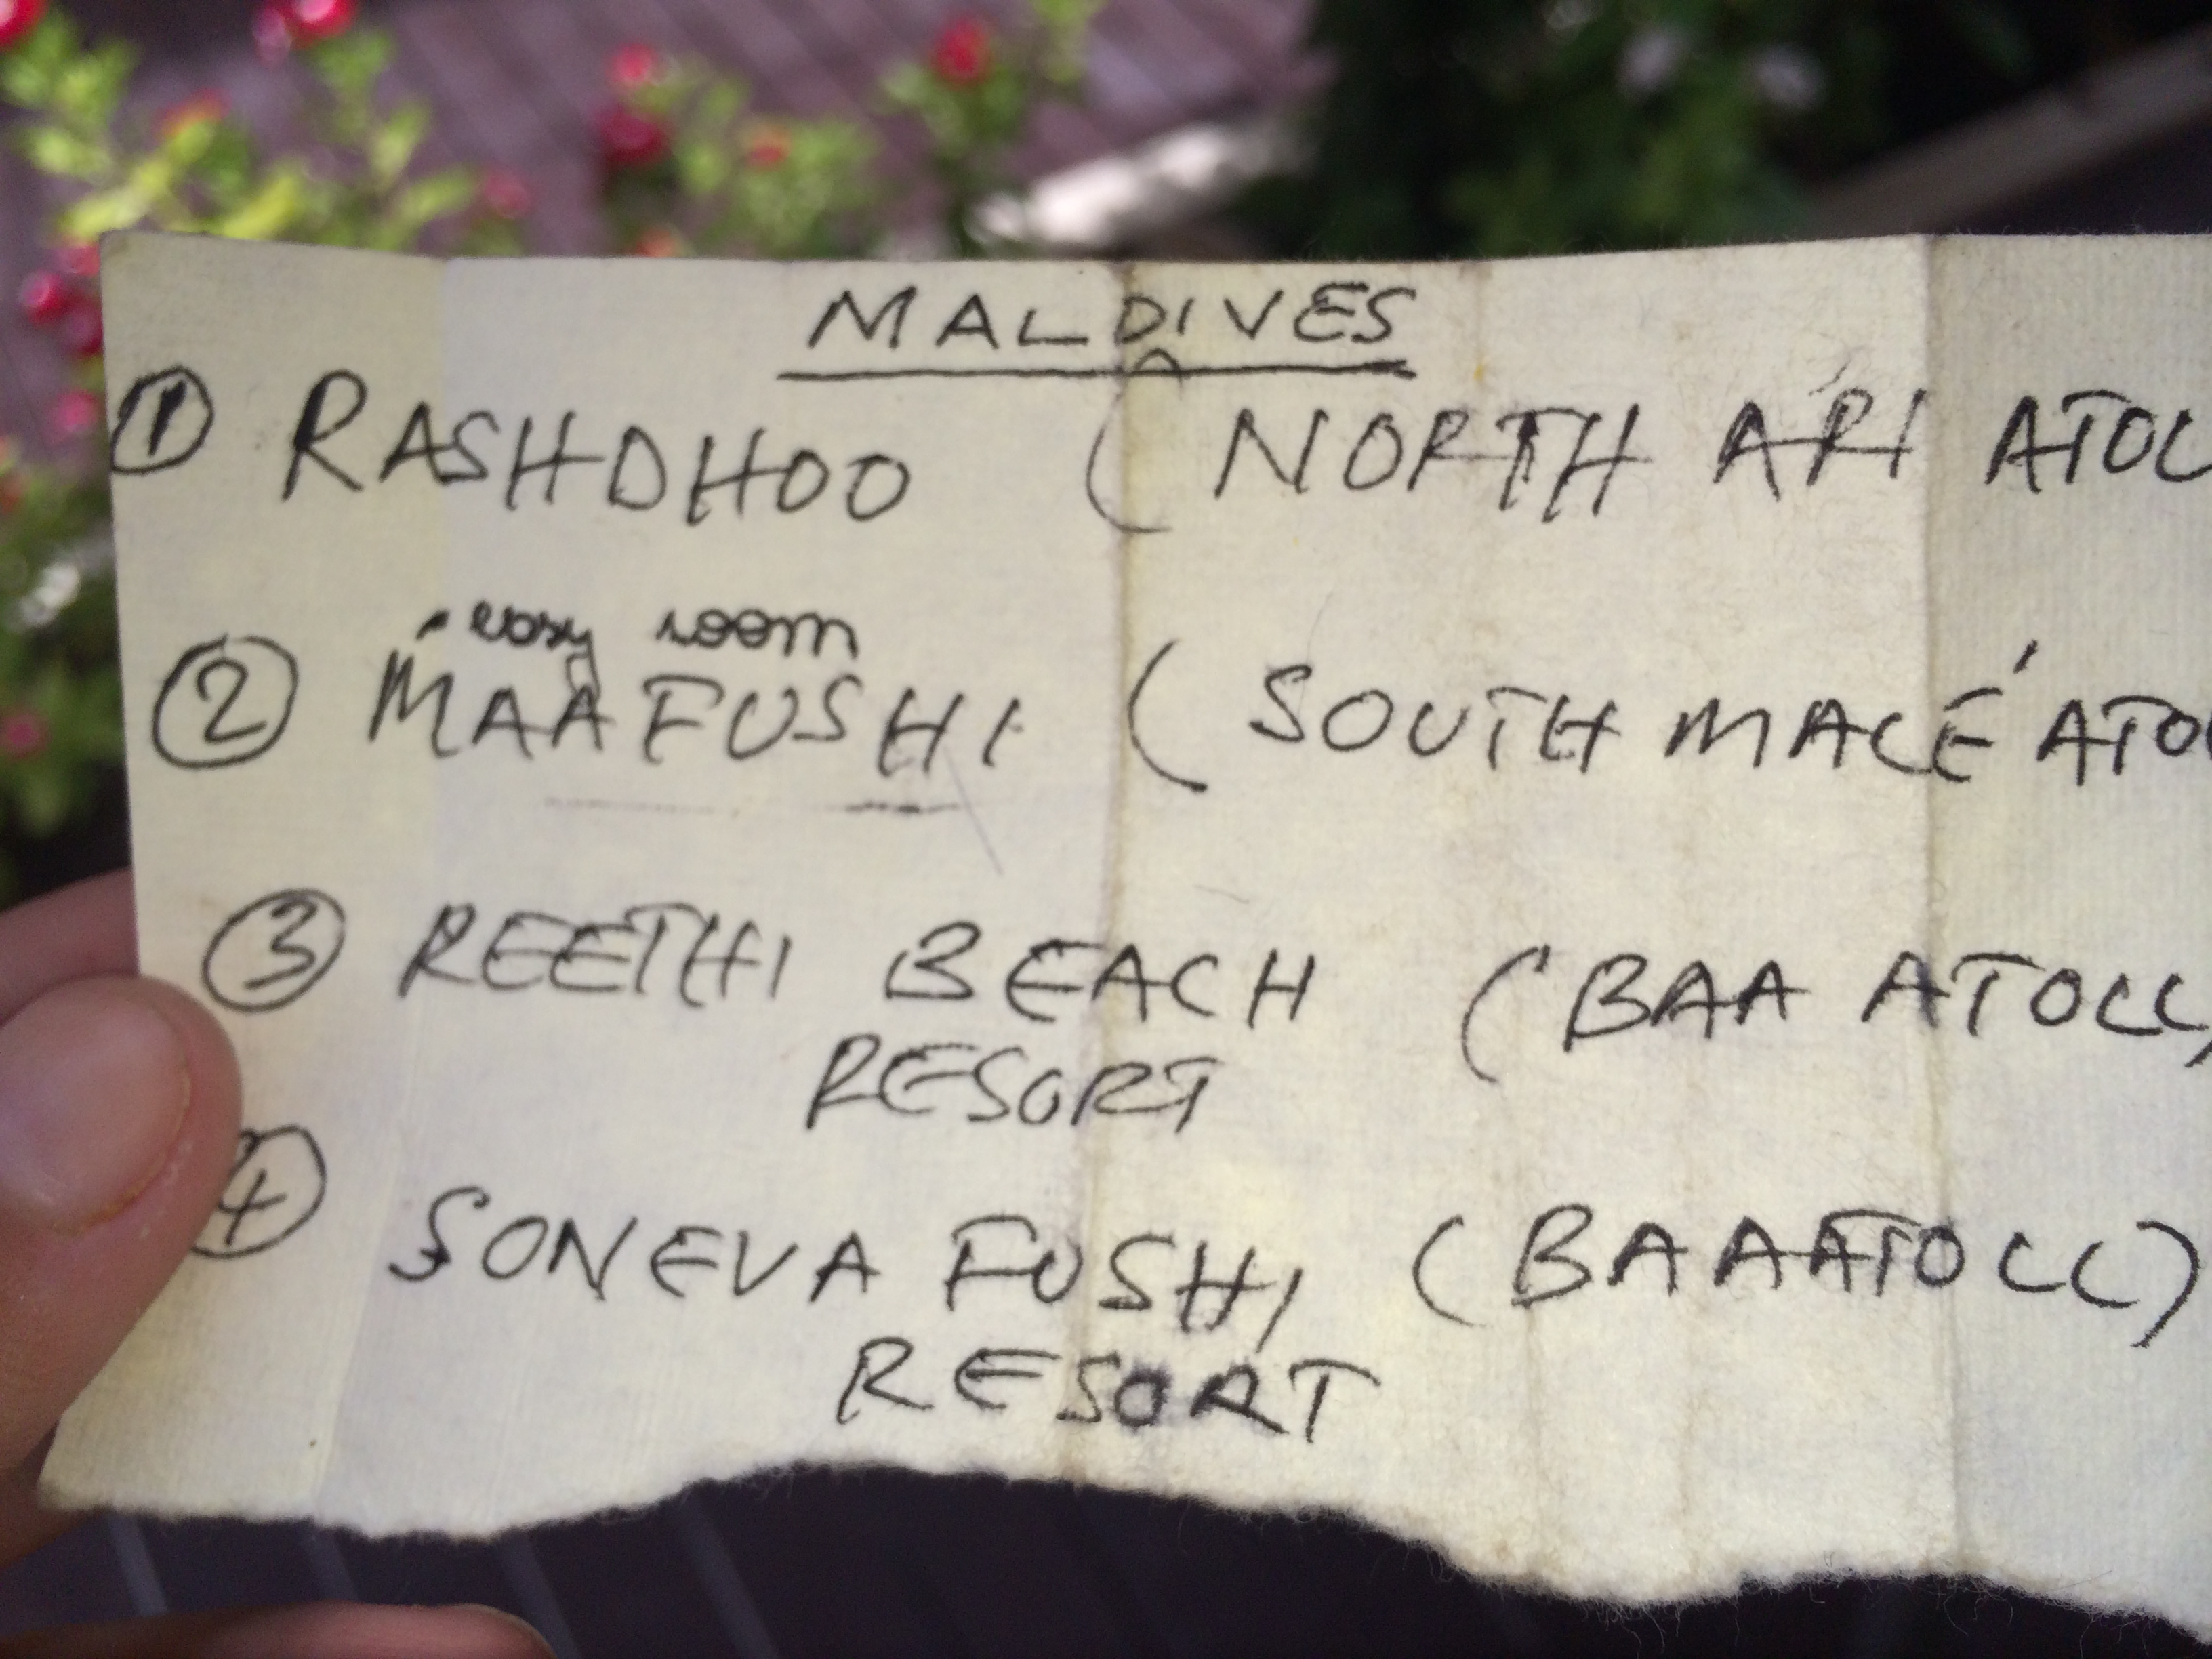 MALDIVES
① RASHDHOO ( NORTH ARI ATOL
cosy room
② MAAFUSHI ( SOUTH MALÉ ATOL
③ REETHI BEACH ( BAA ATOLL)
RESORT
④ SONEVA FUSHI ( BAA ATOLL)
RESORT